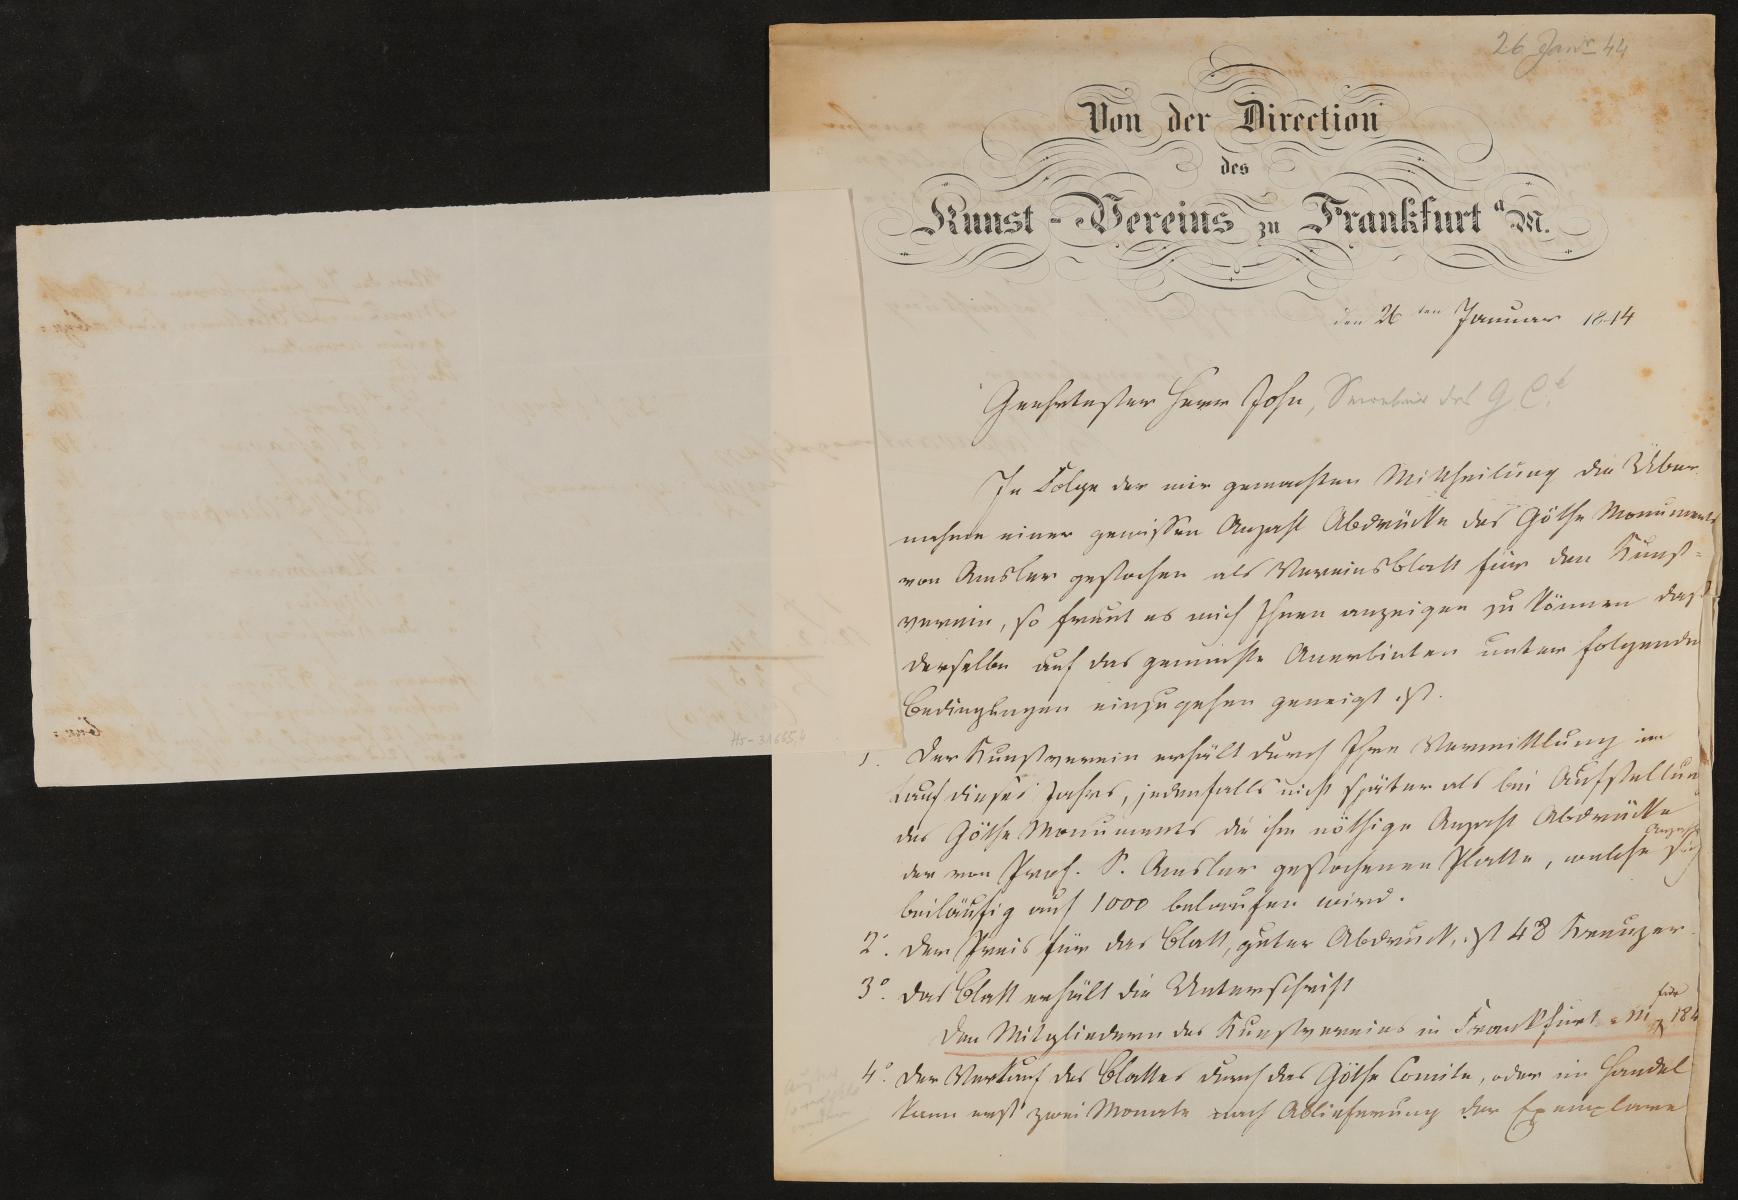 26 Janr 44
Von der Direction
des
Kunst-Vereins zu Frankfurt a/M.
den 26ten Januar 1844
Geehrtester Herr John, Secretair des G. C.
In Folge der mir gemachten Mittheilung die Über-
nahme einer gewissen Anzahl Abdrücke des Göthe Monuments
von Amsler gestochen als Vereinsblatt für den Kunst-
verein, so freut es mich Ihnen anzeigen zu können daß
derselbe auf das gemachte Anerbieten unter folgenden
Bedingungen einzugehen geneigt ist.
1. Der Kunstverein erhält durch Ihre Vermittlung im
Lauf dieses Jahrs, jedenfalls nicht später als bei Aufstellung
des Göthe Monuments die ihm nöthige Anzahl Abdrücke
der von Prof. S. Amsler gestochenen Platte, welche Anzahl sich
beiläufig auf 1000 belaufen wird.
2°. Der Preis für das Blatt, guter Abdruck, ist 48 Kreuzer.
3°. Das Blatt erhält die Unterschrift
Den Mitgliedern des Kunstvereins in Frankfurt a M für 184
4° Der Verkauf des Blattes durch das Göthe Comite, oder im Handel
kann erst zwei Monate nach Ablieferung der Exemplare
Hs-31665,4